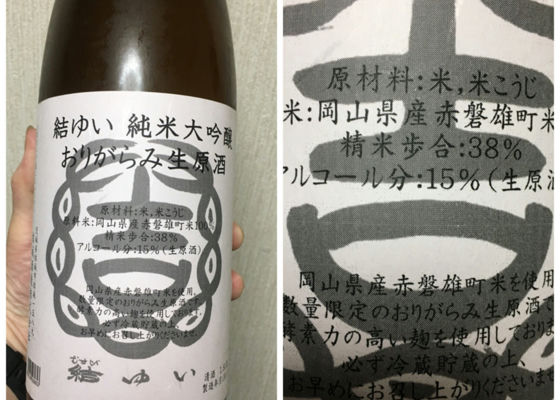 結ゆい 純米大吟醸
おりがらみ生原酒
原材料:米,米こうじ
原料米:岡山県産赤磐雄町米100%
精米歩合:38%
アルコール分:15%(生原酒)
岡山県産赤磐雄町米を使用
数量限定のおりがらみ生原酒です。
酵素力の高い麹を使用しており、
必ず冷蔵貯蔵の上、
お早めにお召し上がりくださいませ
むすび
結ゆい
清酒
原材料:米,米こうじ
米:岡山県産赤磐雄町米
精米歩合:38%
アルコール分:15%(生原酒)
岡山県産赤磐雄町米を使用
数量限定のおりがらみ生原酒
酵素力の高い麹を使用してお
必ず冷蔵貯蔵の上、
お早めにお召し上がりくださ